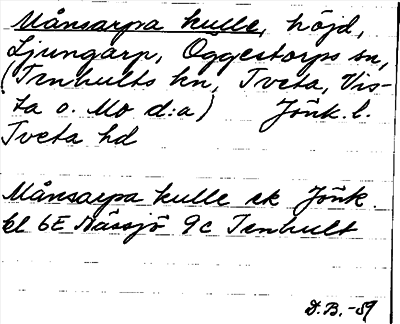 Månsarpa kulle, höjd,
Ljungarp, Öggestorps sn,
(Tenhults kn, Tveta, Vis-
ta o. Mo d:a) Jönk. l.
Tveta hd
Månsarpa kulle ek Jönk.
bl 6E Nässjö 9c Tenhult
D.B.-59